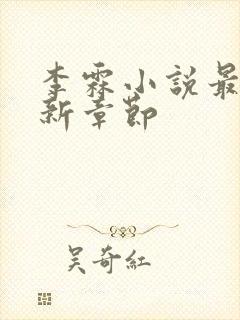 李霖小說最
新章節
吳奇紅